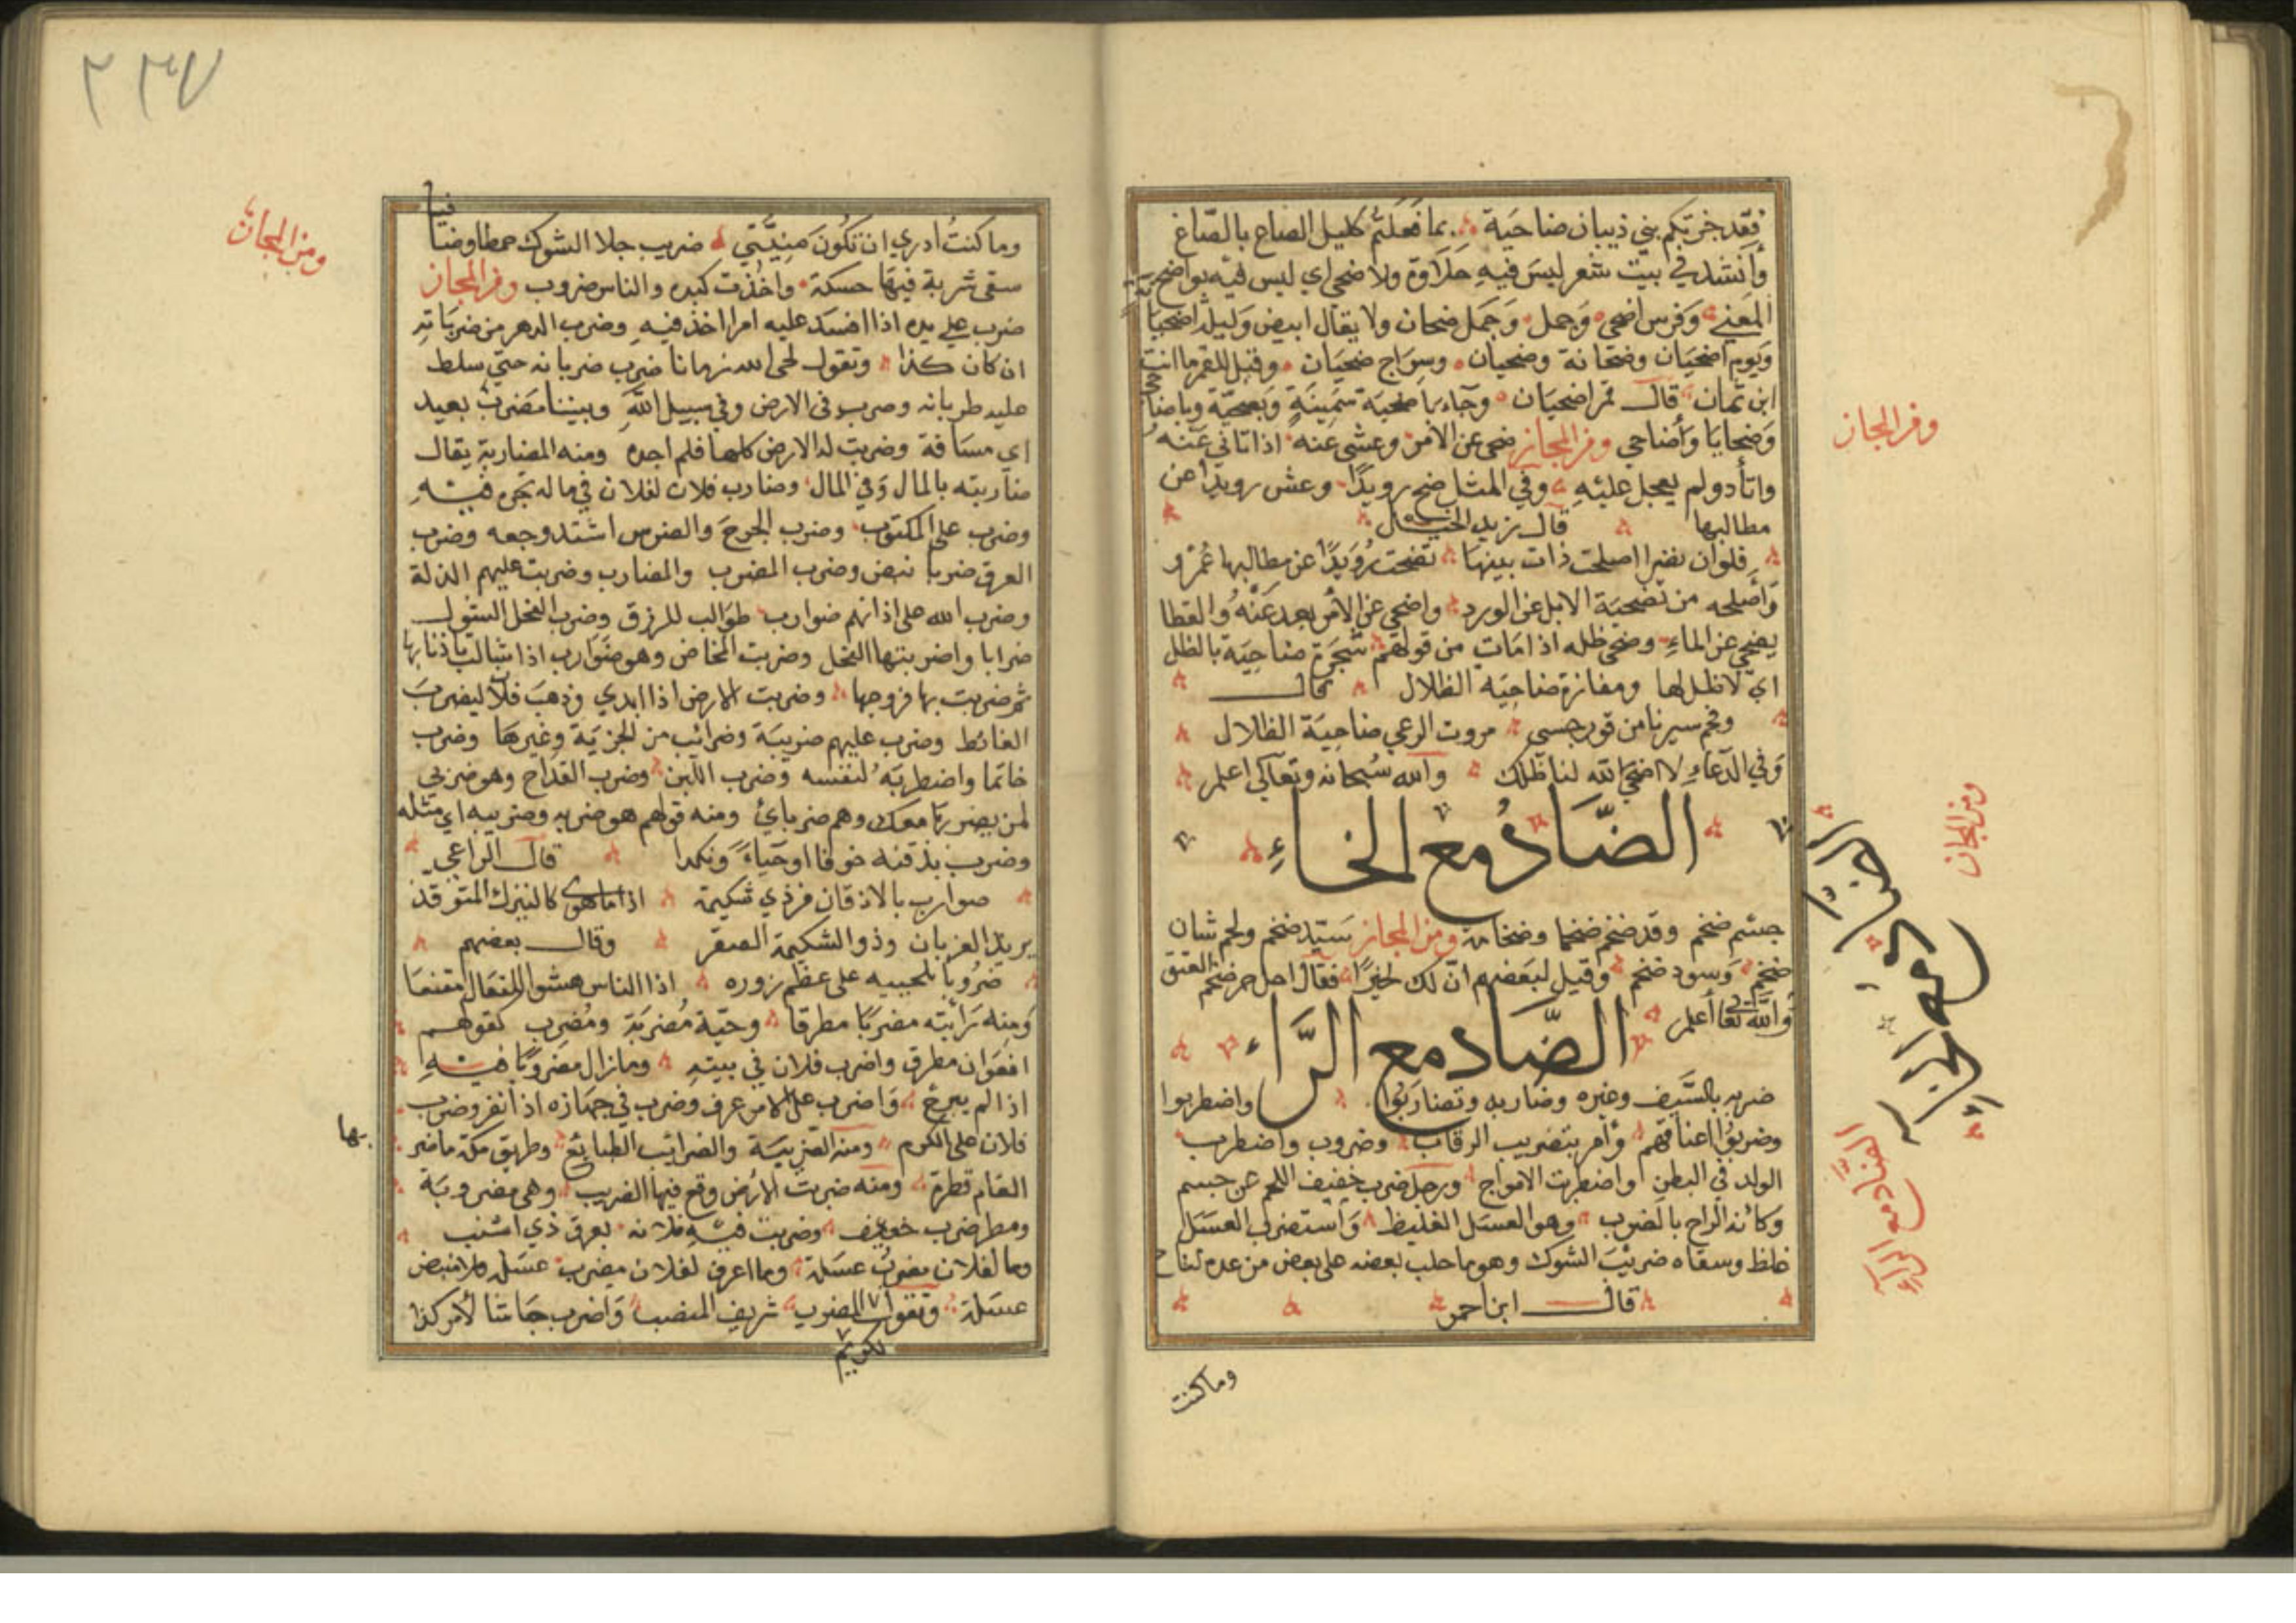 فقد خزتكم بني ذبيان ضاحية بما فعلتم ككيل الصاع بالصاع
وأنشد في بيت شعر ليس فيه حلاوة ولا ضحى اي ليس فيه بواضح
المعني وفرس اضحى وجمل وجمل ضحان ولا يقال ابيض وليلة اضحيانة
ويوم اضحيان وضحانة وضحيان وسراج ضحيان وقيل للقمر ما انت
ابن ثمان قال قمر اضحيان وجاء باضحية سمينة وبضحية وباضاحي
وضحايا وأضاحي ومن المجاز ضحى عن الامر وعشى عنه اذا تاني عنه
واتأد ولم يعجل عليه وفي المثل ضح رويدا وعش رويدا عن
مطالبها قال زيد الخيل
فلو ان نصرا اصلحت ذات بينها تضحت رويدًا عن مطالبها عمرو
وأصله من تضحية الابل عن الورد واضحى عن الأمر بعد عنه والقطا
يضحى عن الماء وضحى ظله اذا مات من قولهم شجرة ضاحية بالظل
اي لا ظل لها ومفازة ضاحية الظلال قال
وفخم سيرنا من قور حسمى مروت الرعي ضاحية الظلال
وفي الدعاء لا اضحى الله لنا ظلك والله سبحانه وتعالى اعلم
الضاد مع الخاء
جسم ضخم وقد ضخم ضخما وضخامة ومن المجاز سيد ضخم ولحم شان
ضخم وسود ضخم وقيل لبعضهم ان لك لخيرًا فقال اجل حر ضخم العتيق
والله تعا أعلم
الضاد مع الراء
ضربه بالسيف وغيره وضاربه وتضاربوا واضطربوا
وضربوا اعناقهم وأمر بتضريب الرقاب وضروب واضطرب
الولد في البطن واضطربت الامواج ورجل ضرب خفيف اللحم عن جسيم
وكأنه الراح بالضرب وهو العسل الغليظ واستضرب العسل
غلظ وسقاه ضريب الشوك وهو ما حلب بعضه على بعض من عدة لقاح
قال ابن احمر
وما كنت
ومن المجاز
ومن المجاز
الضاد مع الخاء
الضاد مع الراء
٢٣٧
وما كنت أدري ان تكون منيتي ضريب جلاد الشوك خمطا وضيا فيا
سقى شربة فيها حسكة واخذت كبده والناس ضروب ومن المجاز
ضرب على يده اذا افسد عليه امرا اخذ فيه وضرب الدهر من ضرباته
ان كان كذا وتقول لحى الله زمانا ضرب ضربانه حتى سلط
عليه ظربانه وضرب فى الارض وفي سبيل الله وبيننا مضرب بعيد
اي مسافة وضربت له الارض كلها فلم اجده ومنه المضاربة يقال
ضاربته بالمال وفي المال وضارب فلان لفلان في ماله تجر فيه
وضرب على المكتوب وضرب الجرح والضرس اشتد وجعه وضرب
العرق ضربا نبض وضرب المضرب والمضارب وضربت عليهم الذلة
وضرب الله على اذانهم ضوارب طوالب للرزق وضرب الفحل الشول
ضرابا واضربتها الفحل وضربت المخاض وهو ضوارب اذا شالت باذنابها
ثم ضربت بها فروجها وضربت الارض اذا ابدي وذهب فلان ليضرب
الغائط وضرب عليهم ضريبة وضرائب من الجزية وغيرها وضرب
خاتما واضطربه لنفسه وضرب اللبن وضرب القداح وهو ضريبي
لمن يضربها معك وهم ضربائي ومنه قولهم هو ضربه وضريبه اي مثله
وضرب بذقنه خوفا او حياء ونكدا قال الراعي
ضوارب بالاذقان من ذي شكيمة اذا ما هوى كالنيزك المتوقد
يريد الغربان وذو الشكيمة الصقر وقال بعضهم
ضروبا بلحييه على عظم زوره اذا الناس هشوا للفعال تقنعا
ومنه رأيته مضربا مطرقا وحية مضربة ومضرب كقولهم
افعوان مطرق واضرب فلان في بيته وما زال مضروبا فيه
اذا لم يبرح واضرب على الامر عرف وضرب في جهازه اذا نفر وضرب
فلان على الكرم ومنه الضريبة والضرائب الطبائع وطريق مكة ما ضربها
العام قطرة ومنه ضربت الارض وقع فيها الضريب وهي مضروبة
ومطر ضرب خفيف وضربت فيه فلانة بعرق ذي اشنب
وما لفلان مضرب عسلة وما اعرف لفلان مضرب عسلة ولا منبض
عسلة وتقول المضرب شريف المنصب وأضرب جاشا لأمر كذا
لكريم
ومن المجاز
بها